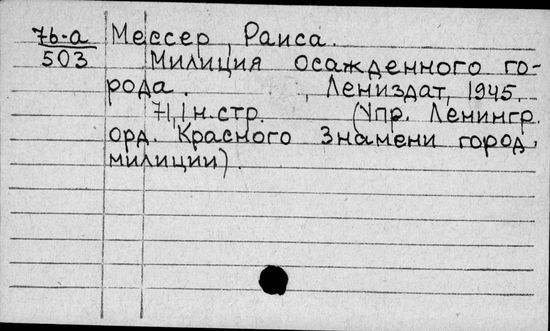 76-а Мессер, Раиса.
503 Милиция осажденного го-
рода. , Лениздат, 1945.
71, 1 н.стр. (Упр. Ленингр.
орд. Красного Знамени город.
милиции).